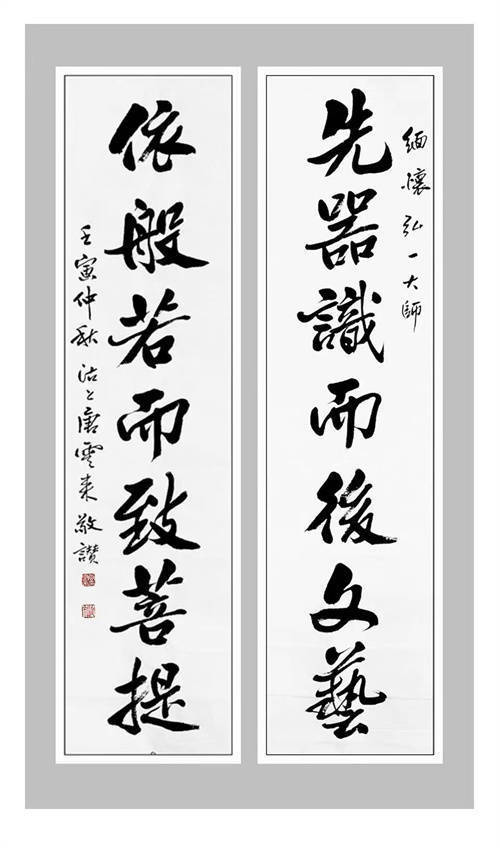 緬懷弘一大師
先器識而後文藝
依般若而致菩提
壬寅仲秋沽上唐雲來敬讚